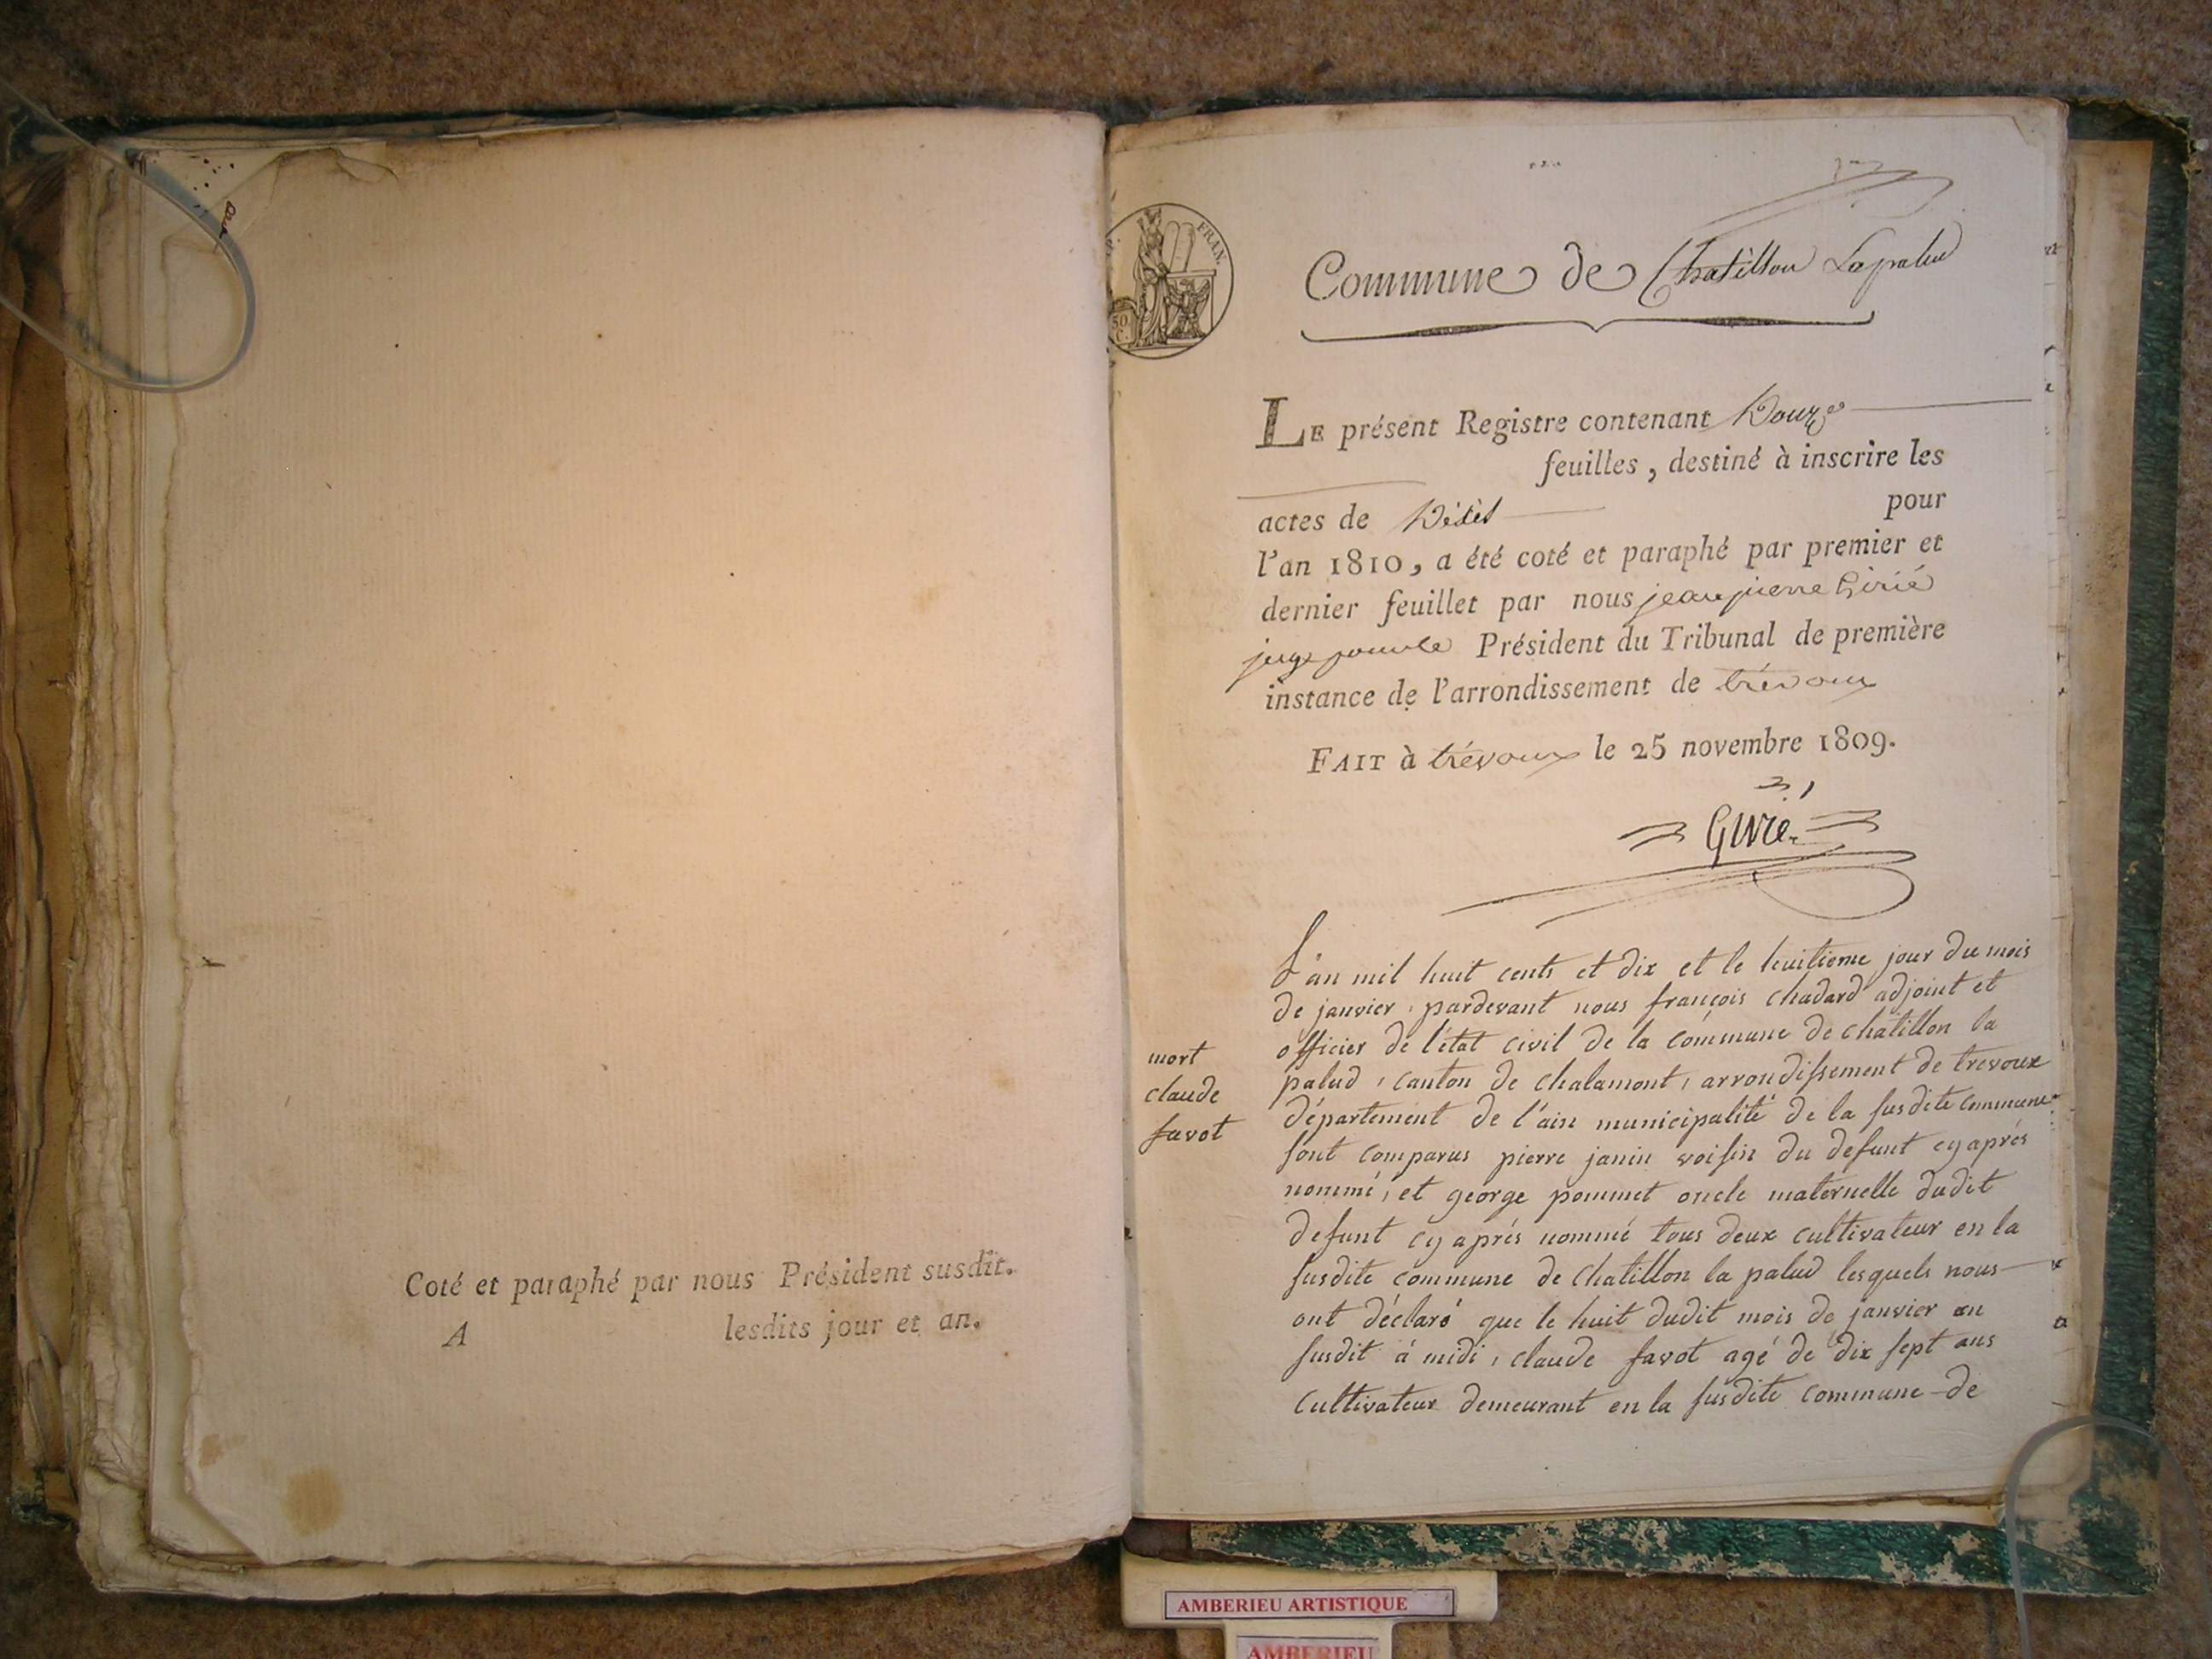 Coté et paraphé par nous Président susdit.
A lesdits jour et an.
FRAN.
50
C.
Commune de Chatillon Lapalud
LE présent Registre contenant Douze
feuilles, destiné à inscrire les
actes de Décès pour
l'an 1810, a été coté et paraphé par premier et
dernier feuillet par nous jean pierre Girié
juge pour le Président du Tribunal de première
instance de l'arrondissement de trévoux
FAIT à trévoux le 25 novembre 1809.
Girié
mort
claude
favot
L'an mil huit cents et dix et le huitieme jour du mois
de janvier, pardevant nous françois chadard adjoint et
officier de l'état civil de la commune de chatillon la
palud, canton de chalamont, arrondissement de trevoux
département de l'ain municipalité de la susdite commune
sont comparus pierre janin voisin du defunt cy après
nommé, et george pommet oncle maternelle dudit
defunt cy après nommé tous deux cultivateur en la
susdite commune de chatillon la palud lesquels nous
ont déclaré que le huit dudit mois de janvier an
susdit à midi, claude favot agé de dix sept ans
cultivateur demeurant en la susdite commune de
AMBERIEU ARTISTIQUE
AMBERIEU